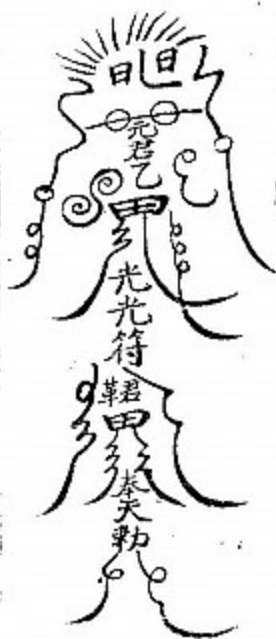 日日
元君乙
甲
光光符
君
甲
奉天勅